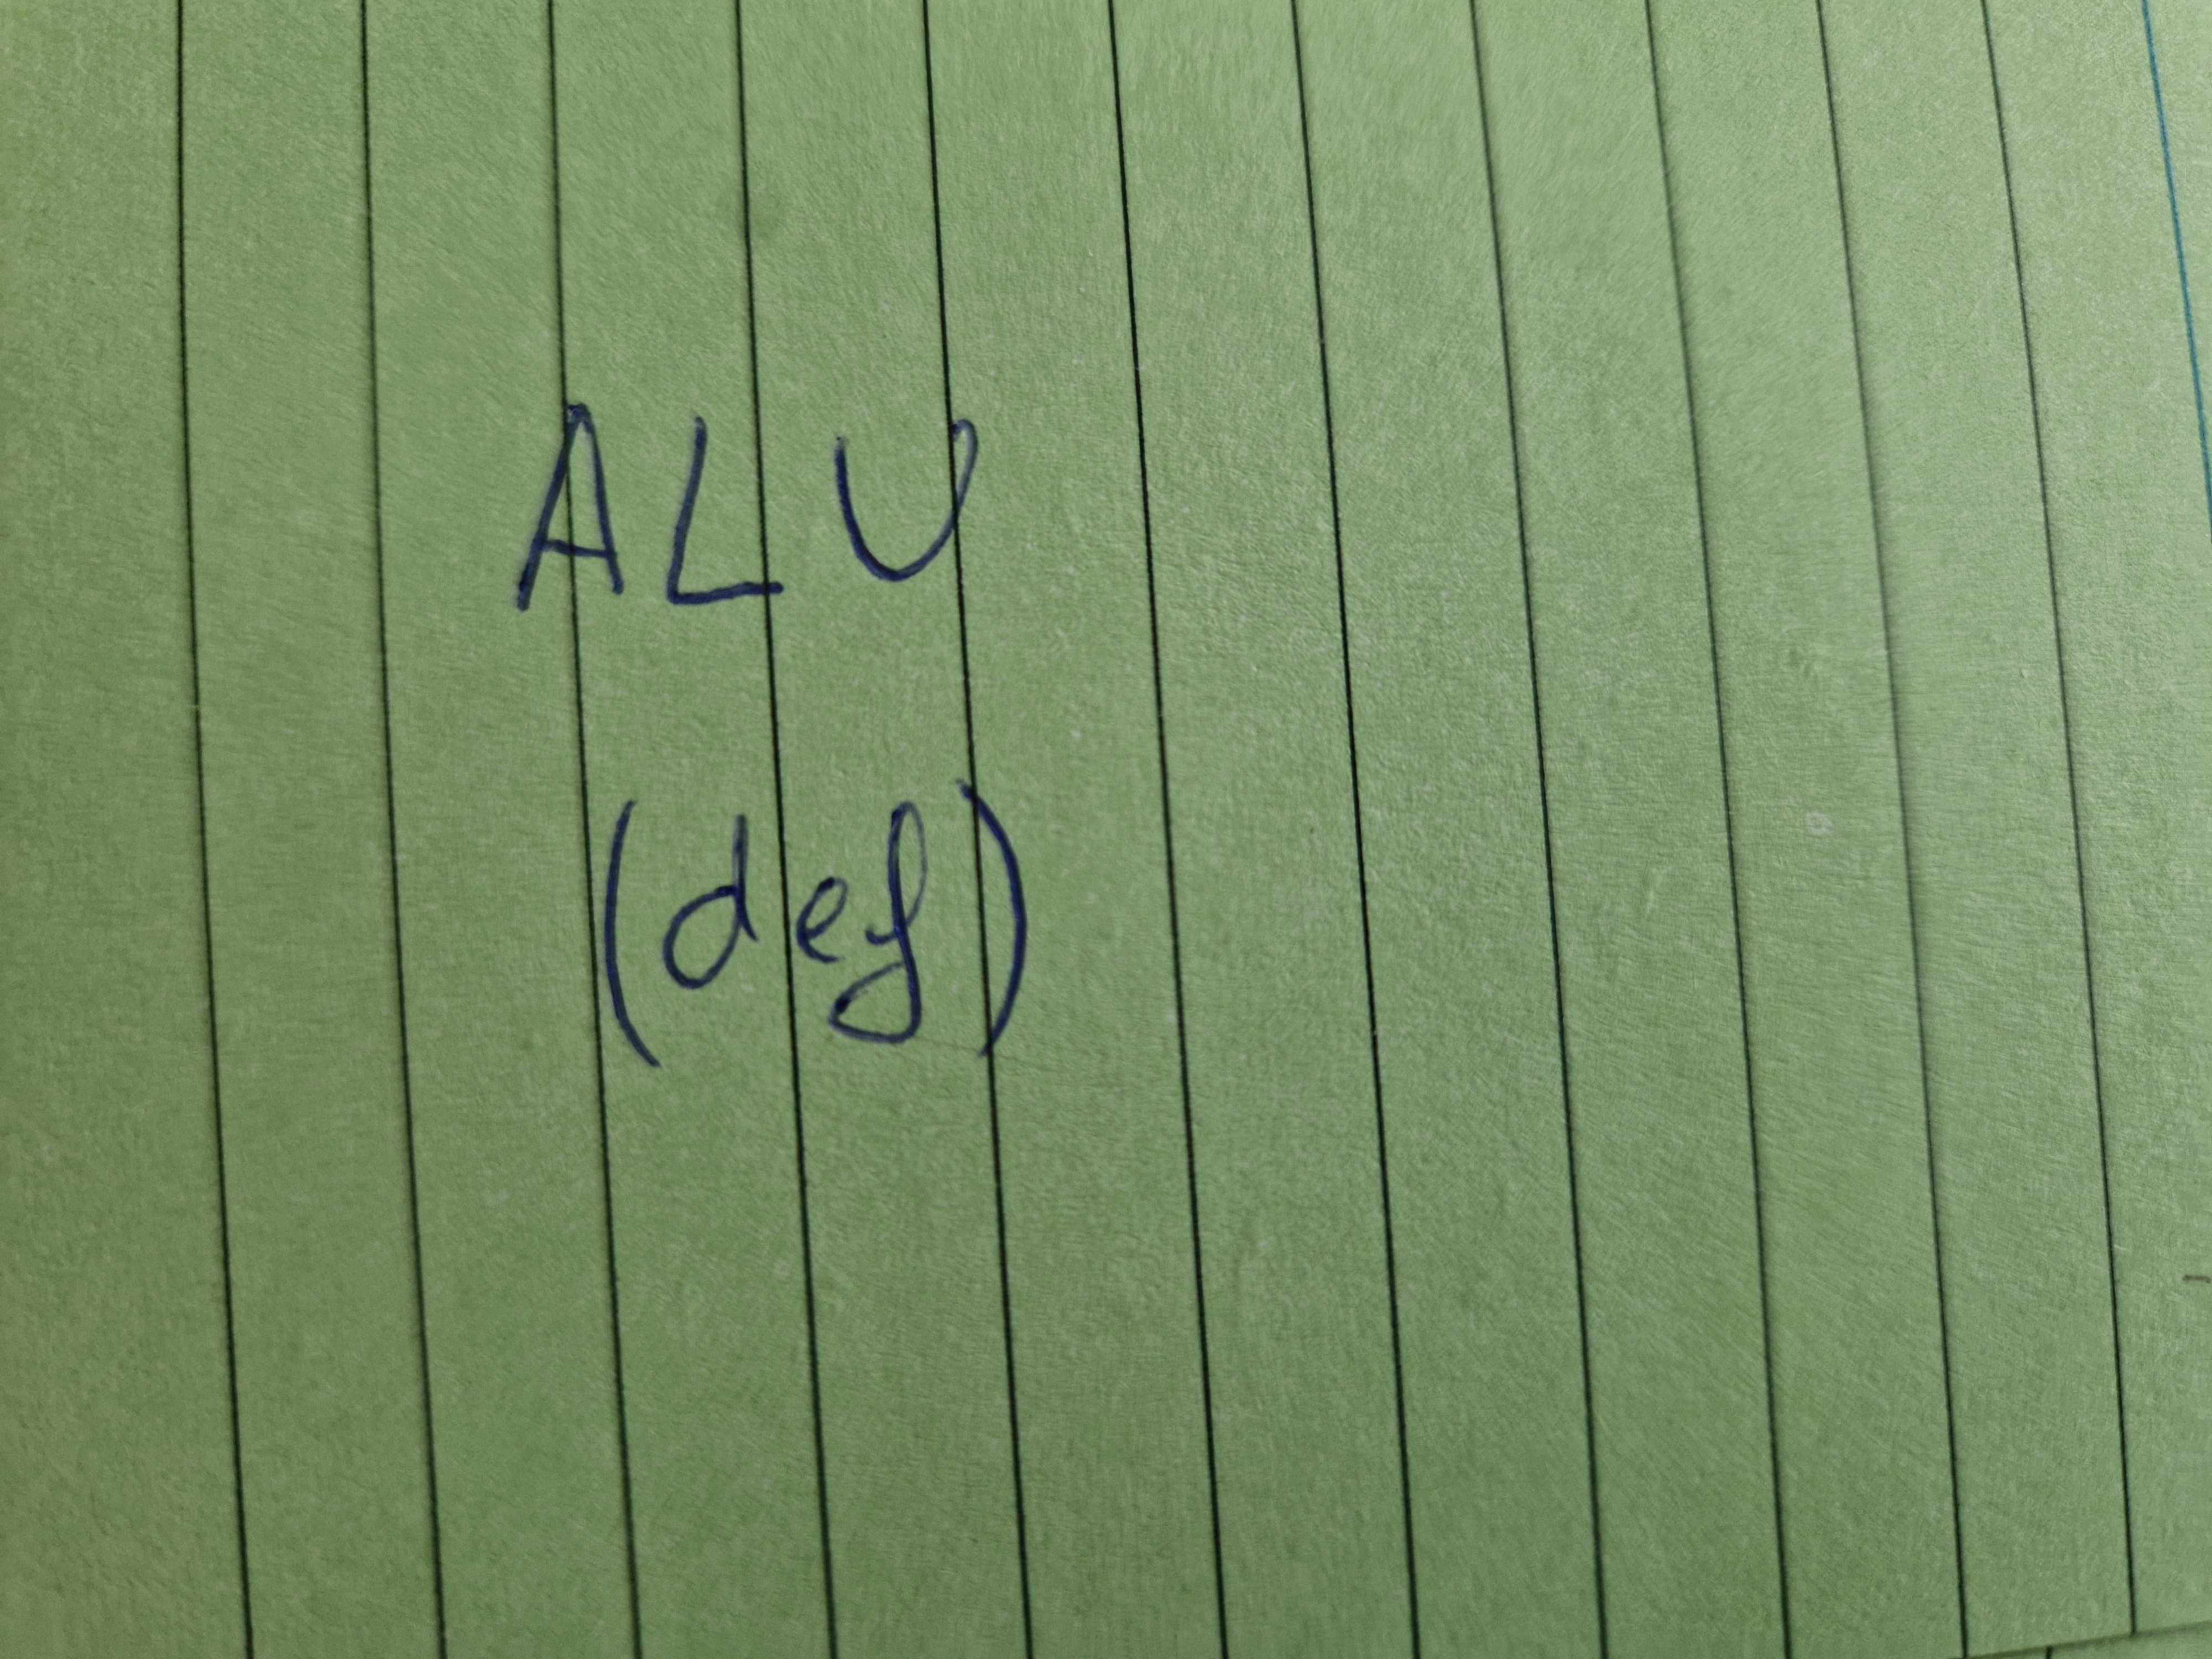 ALU
(def)